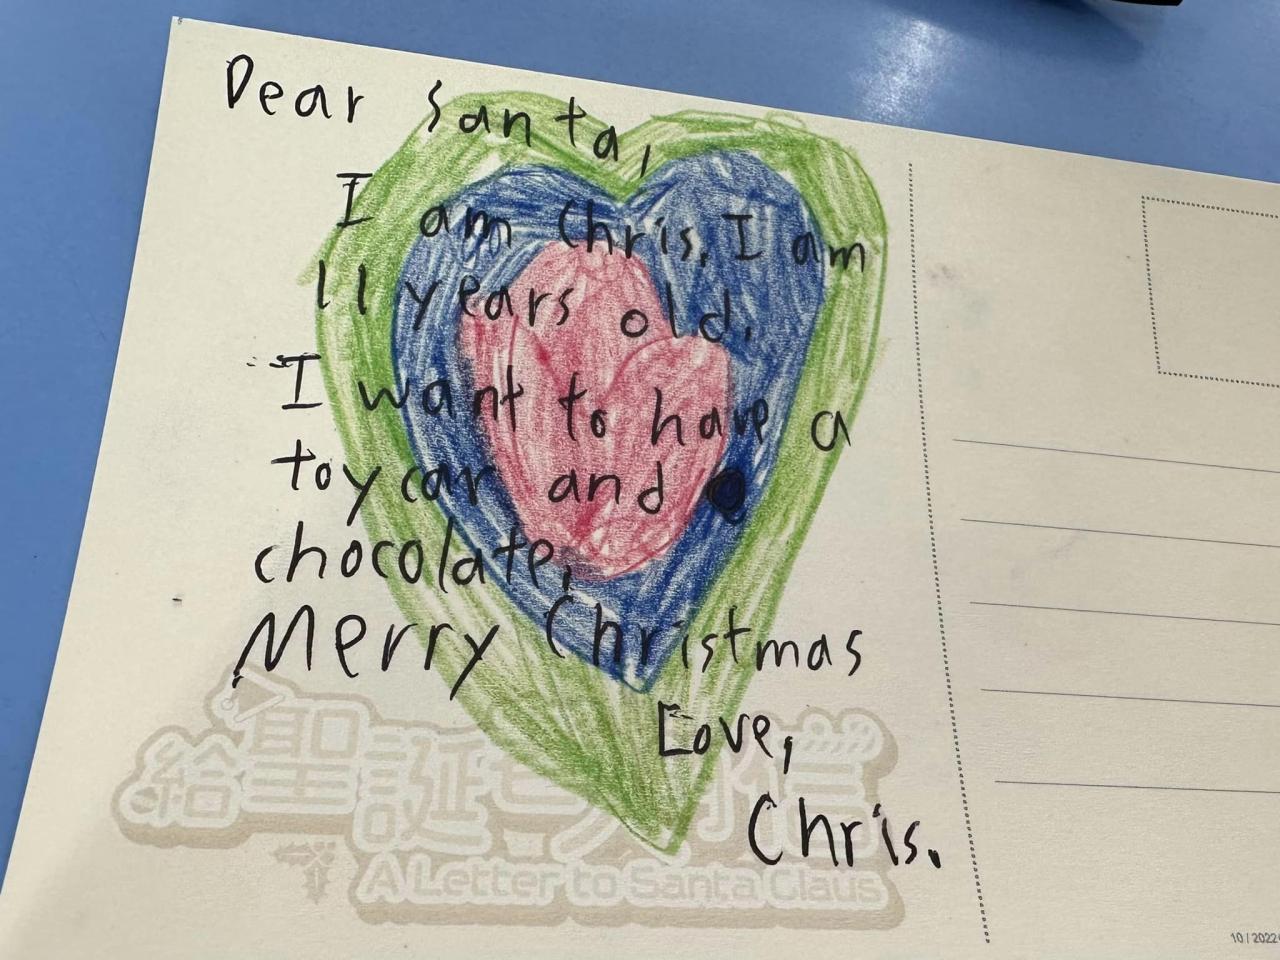 Dear Santa,
I am Chris. I am
11 years old.
I want to have a
toy car and
chocolate.
Merry Christmas
Love,
Chris.
給聖誕老人的信
A Letter to Santa Claus
10 / 2022